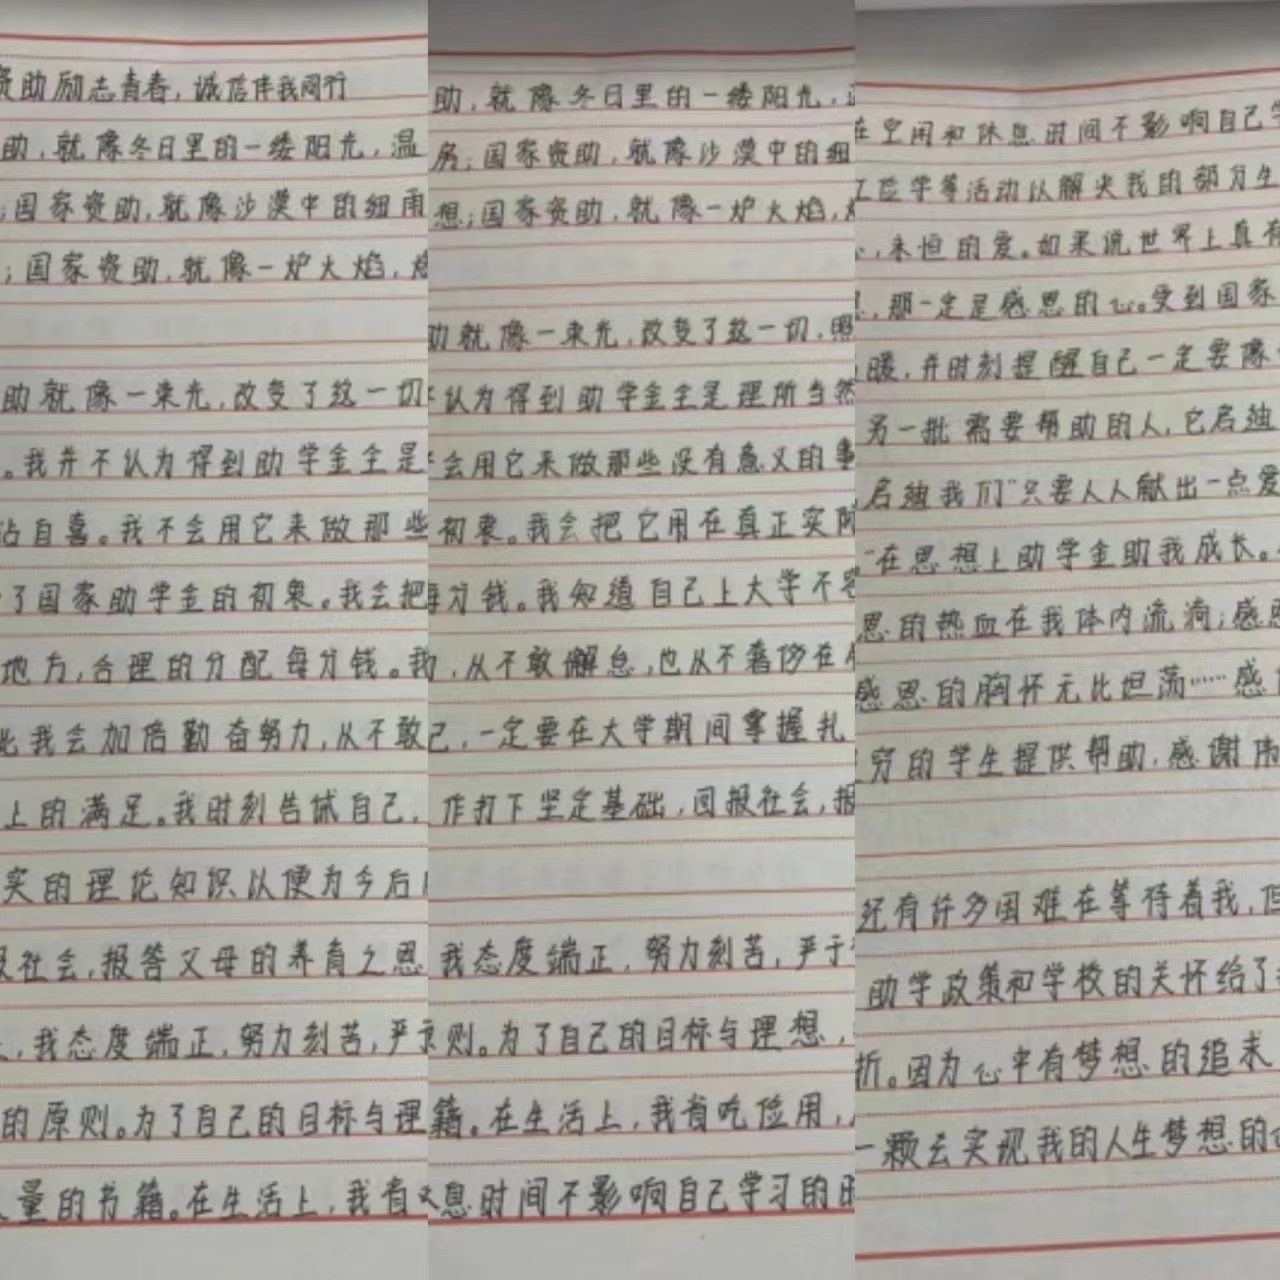 资助励志青春，诚信伴我同行
助，就像冬日里的一缕阳光，温
；国家资助，就像沙漠中的细雨
；国家资助，就像一炉火焰，
助就像一束光，改变了这一切
。我并不认为得到助学金全是
沾自喜。我不会用它来做那些
了国家助学金的初衷。我会把
地方，合理的分配每分钱。我
此我会加倍勤奋努力，从不敢
上的满足。我时刻告诫自己，
实的理论知识以便为今后
社会，报答父母的养育之恩
，我态度端正，努力刻苦，严
的原则。为了自己的目标与理
量的书籍。在生活上，我省
助，就像冬日里的一缕阳光，
房；国家资助，就像沙漠中的细
想；国家资助，就像一炉火焰，
就像一束光，改变了这一切，照
认为得到助学金全是理所当然
会用它来做那些没有意义的事
初衷。我会把它用在真正实际
每分钱。我知道自己上大学不容
，从不敢懈怠，也从不奢侈在
己，一定要在大学期间掌握扎
作打下坚定基础，回报社会，报
我态度端正，努力刻苦，严于
则。为了自己的目标与理想，
籍。在生活上，我省吃俭用，
息时间不影响自己学习的时
在空闲和休息时间不影响自己学
工俭学等活动以解决我的部分生
，永恒的爱。如果说世界上真有
，那一定是感恩的心。受到国家
暖，并时刻提醒自己一定要像
另一批需要帮助的人，它启迪
启迪我们“只要人人献出一点爱
在思想上助学金助我成长。
恩的热血在我体内流淌；感恩
感恩的胸怀无比坦荡……感
穷的学生提供帮助，感谢伟
还有许多困难在等待着我，但
助学政策和学校的关怀给了
折。因为心中有梦想的追求
一颗去实现我的人生梦想的